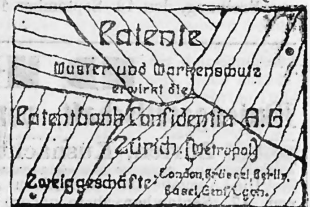 Patente
Muster und Markenschutz
erwirkt die
Patentbank Confidentia A.G
Zürich (Metropol)
Zweiggeschäfte London, Brüssel, Berlin,
Basel, Genf, Lyon.